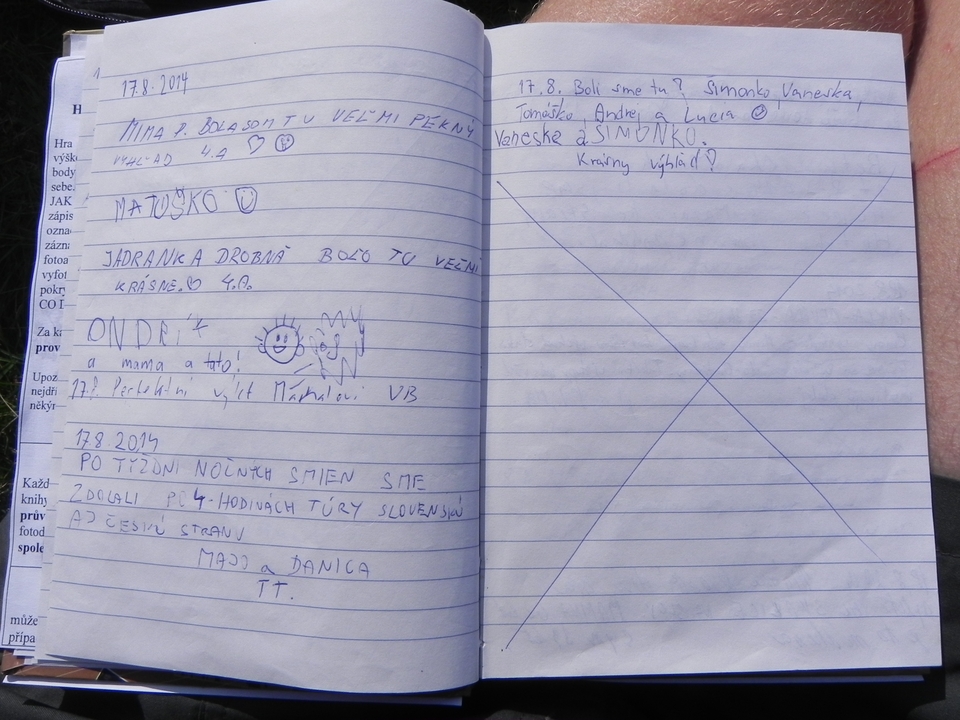 17.8.2014
MIMA P. BOLA SOM TU VEĽMI PEKNÝ
VÝHĽAD 4.A
MATÚŠKO
JADRANKA DROBNÁ BOLO TU VEĽMI
KRÁSNE. 4.A.
ONDRÍK
a mama a tato!
17.8. Perfektní výlet VB
17.8.2014
PO TÝŽDNI NOČNÝCH SMIEN SME
ZDOLALI PO 4-HODINÁCH TÚRY SLOVENSKÚ
AJ ČESKÚ STRANU
MAJO a DANICA
TT.
17.8. Boli sme tu? Simonko, Vaneska,
Tomáško, Andrej a Lucia
Vaneska a SIMONKO.
Krásny výhľad
Hra
výšk
body
sebe.
JAK
zápis
ozna
zázna
fotoa
vyfot
pokry
CO
Za ka
prov
Upoz
nejdří
někýr
Každ
knihy
prův
fotod
spole
může
přípa